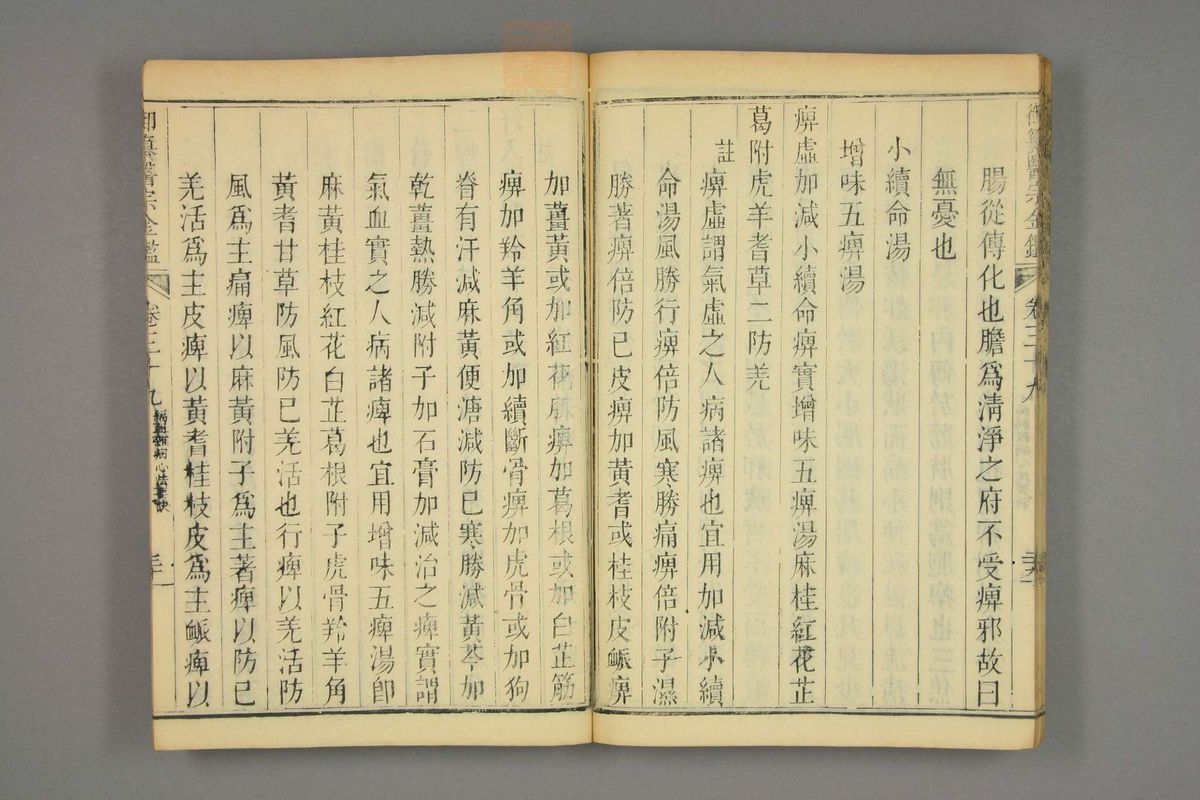 御纂醫宗金鑑 卷三十九
腸從傳化也膽爲淸淨之府不受痹邪故曰
無憂也
小續命湯
增味五痹湯
痹虛加減小續命痹實增味五痹湯麻桂紅花芷
葛附虎羊耆草二防羌
註
痹虛謂氣虛之人病諸痹也宜用加減小續
命湯風勝行痹倍防風寒勝痛痹倍附子濕
勝著痹倍防已皮痹加黃耆或桂枝皮脈痹
加薑黃或加紅花肌痹加葛根或加白芷筋
痹加羚羊角或加續斷骨痹加虎骨或加狗
脊有汗減麻黃便溏減防已寒勝減黃芩加
乾薑熱勝減附子加石膏加減治之痹實謂
氣血實之人病諸痹也宜用增味五痹湯卽
麻黃桂枝紅花白芷葛根附子虎骨羚羊角
黃耆甘草防風防已羌活也行痹以羌活防
風爲主痛痹以麻黃附子爲主著痹以防已
羌活爲主皮痹以黃耆桂枝皮爲主脈痹以
御纂醫宗金鑑 卷三十九 編輯雜病心法要訣